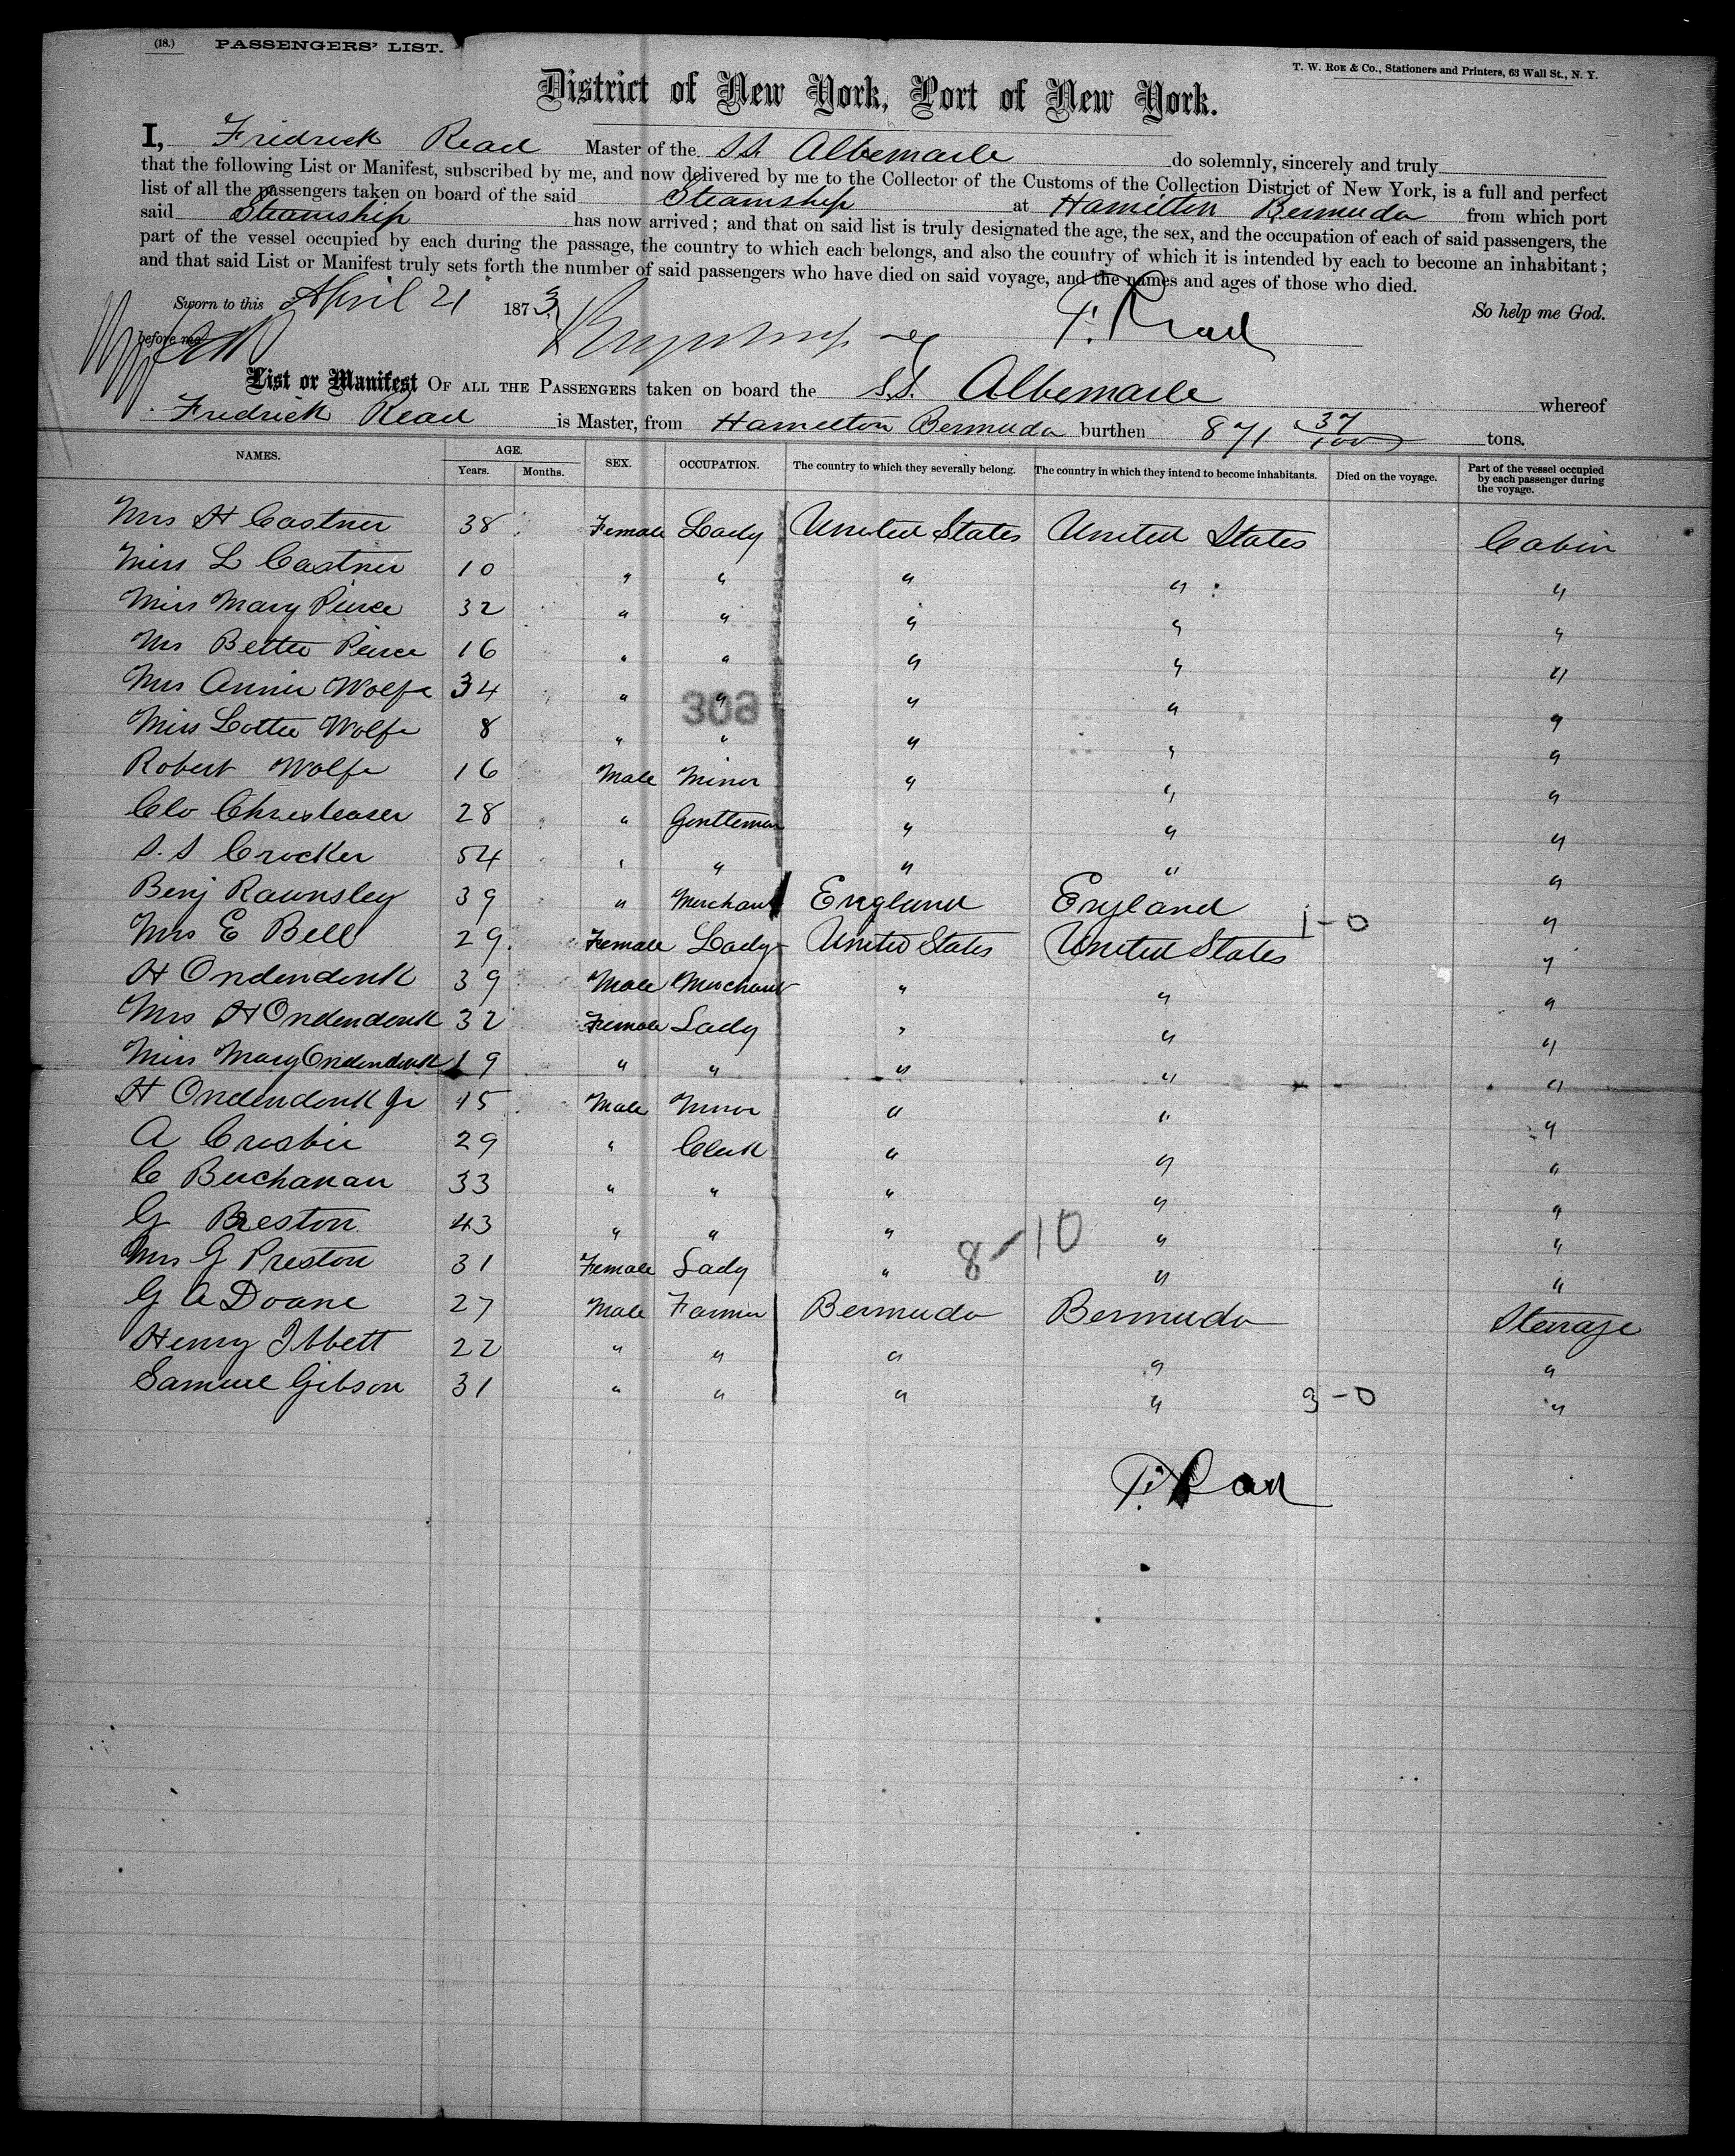 (18.) PASSENGERS' LIST.
T. W. ROE & Co., Stationers and Printers, 63 Wall St., N. Y.
District of New York, Port of New York.
I, Fridrick Read Master of the S.S. Albemarle do solemnly, sincerely and truly
that the following List or Manifest, subscribed by me, and now delivered by me to the Collector of the Customs of the Collection District of New York, is a full and perfect
list of all the passengers taken on board of the said Steamship at Hamilton Bermuda from which port
said Steamship has now arrived; and that on said list is truly designated the age, the sex, and the occupation of each of said passengers, the
part of the vessel occupied by each during the passage, the country to which each belongs, and also the country of which it is intended by each to become an inhabitant;
and that said List or Manifest truly sets forth the number of said passengers who have died on said voyage, and the names and ages of those who died.
Sworn to this April 21 1873 F. Read So help me God.
before me
List or Manifest OF ALL THE PASSENGERS taken on board the S.S. Albemarle whereof
Fredrick Read is Master, from Hamelton Bermuda burthen 871 37/100 tons.
NAMES. AGE. Years. Months. SEX. OCCUPATION. The country to which they severally belong. The country in which they intend to become inhabitants. Died on the voyage. Part of the vessel occupied by each passenger during the voyage.
Mrs H Castner 38 Female Lady United States United States Cabin
Miss L Castner 10 " " " " "
Miss Mary Pierce 32 " " " " "
Mrs Bettie Peirce 16 " " " " "
Mrs Annie Wolfe 34 " " " " "
309
Miss Lottie Wolfe 8 " " " " "
Robert Wolfe 16 Male Minor " " "
Clo 28 " Gentleman " " "
S. S Crocker 54 " " " " "
Benj Rawnsley 39 " Merchant England England "
1-0
Mrs E Bell 29 Female Lady United States United States "
H Ondendonk 39 Male Merchant " " "
Mrs H Ondendonk 32 Female Lady " " "
Miss Mary Ondendonk 19 " " " " "
H Ondendonk Jr 15 Male Minor " " "
A Crosbie 29 " Clerk " " "
C Buchanan 33 " " " " "
G Preston 43 " " " " "
8-10
Mrs G Preston 31 Female Lady " " "
G A Doane 27 Male Farmer Bermuda Bermuda Sterrage
Henry Ibbett 22 " " " " "
Samuel Gibson 31 " " " " "
3-0
F. Read